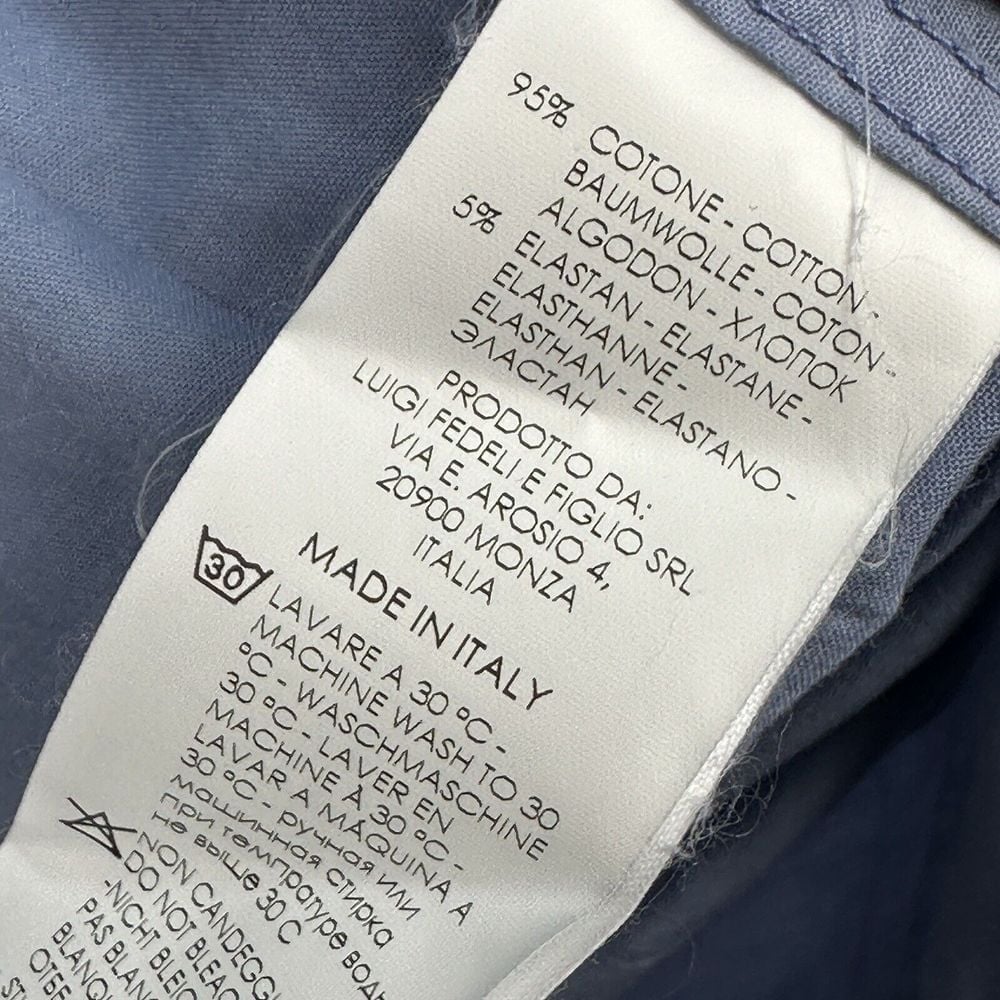 95% COTONE - COTTON -
BAUMWOLLE - COTON -
ALGODON - ХЛОПОК
5% ELASTAN - ELASTANE -
ELASTHANNE -
ELASTHAN - ELASTANO -
ЭЛАСТАН
PRODOTTO DA:
LUIGI FEDELI E FIGLIO SRL
VIA E. AROSIO 4,
20900 MONZA
ITALIA
MADE IN ITALY
30
LAVARE A 30 °C -
MACHINE WASH TO 30
°C - WASCHMASCHINE
30 °C - LAVER EN
MACHINE À 30 °C -
LAVAR A MÁQUINA A
30 °C - ручная или
машинная стирка
при температуре воды
не выше 30 C
NON CANDEGG
DO NOT BLEAC
-NICHT BLEIC
PAS BLANC
BLANQU
ОТБЕ